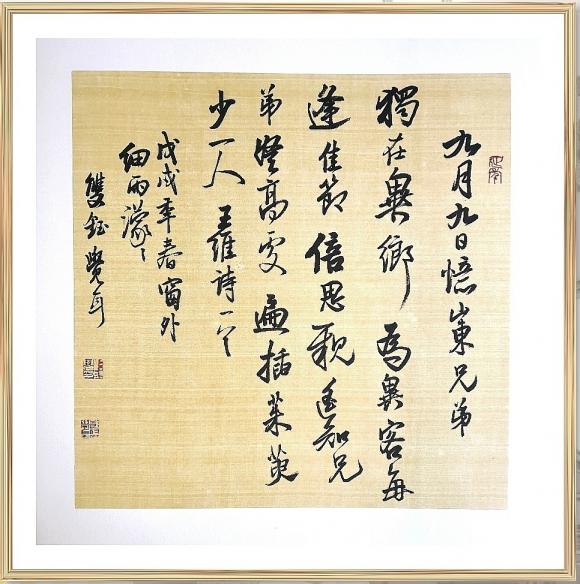 九月九日憶山東兄弟
獨在異鄉為異客每
逢佳節倍思親遙知兄
弟登高處遍插茱萸
少一人 王維詩一首
戊戌年春窗外
細雨濛々
雙鈺